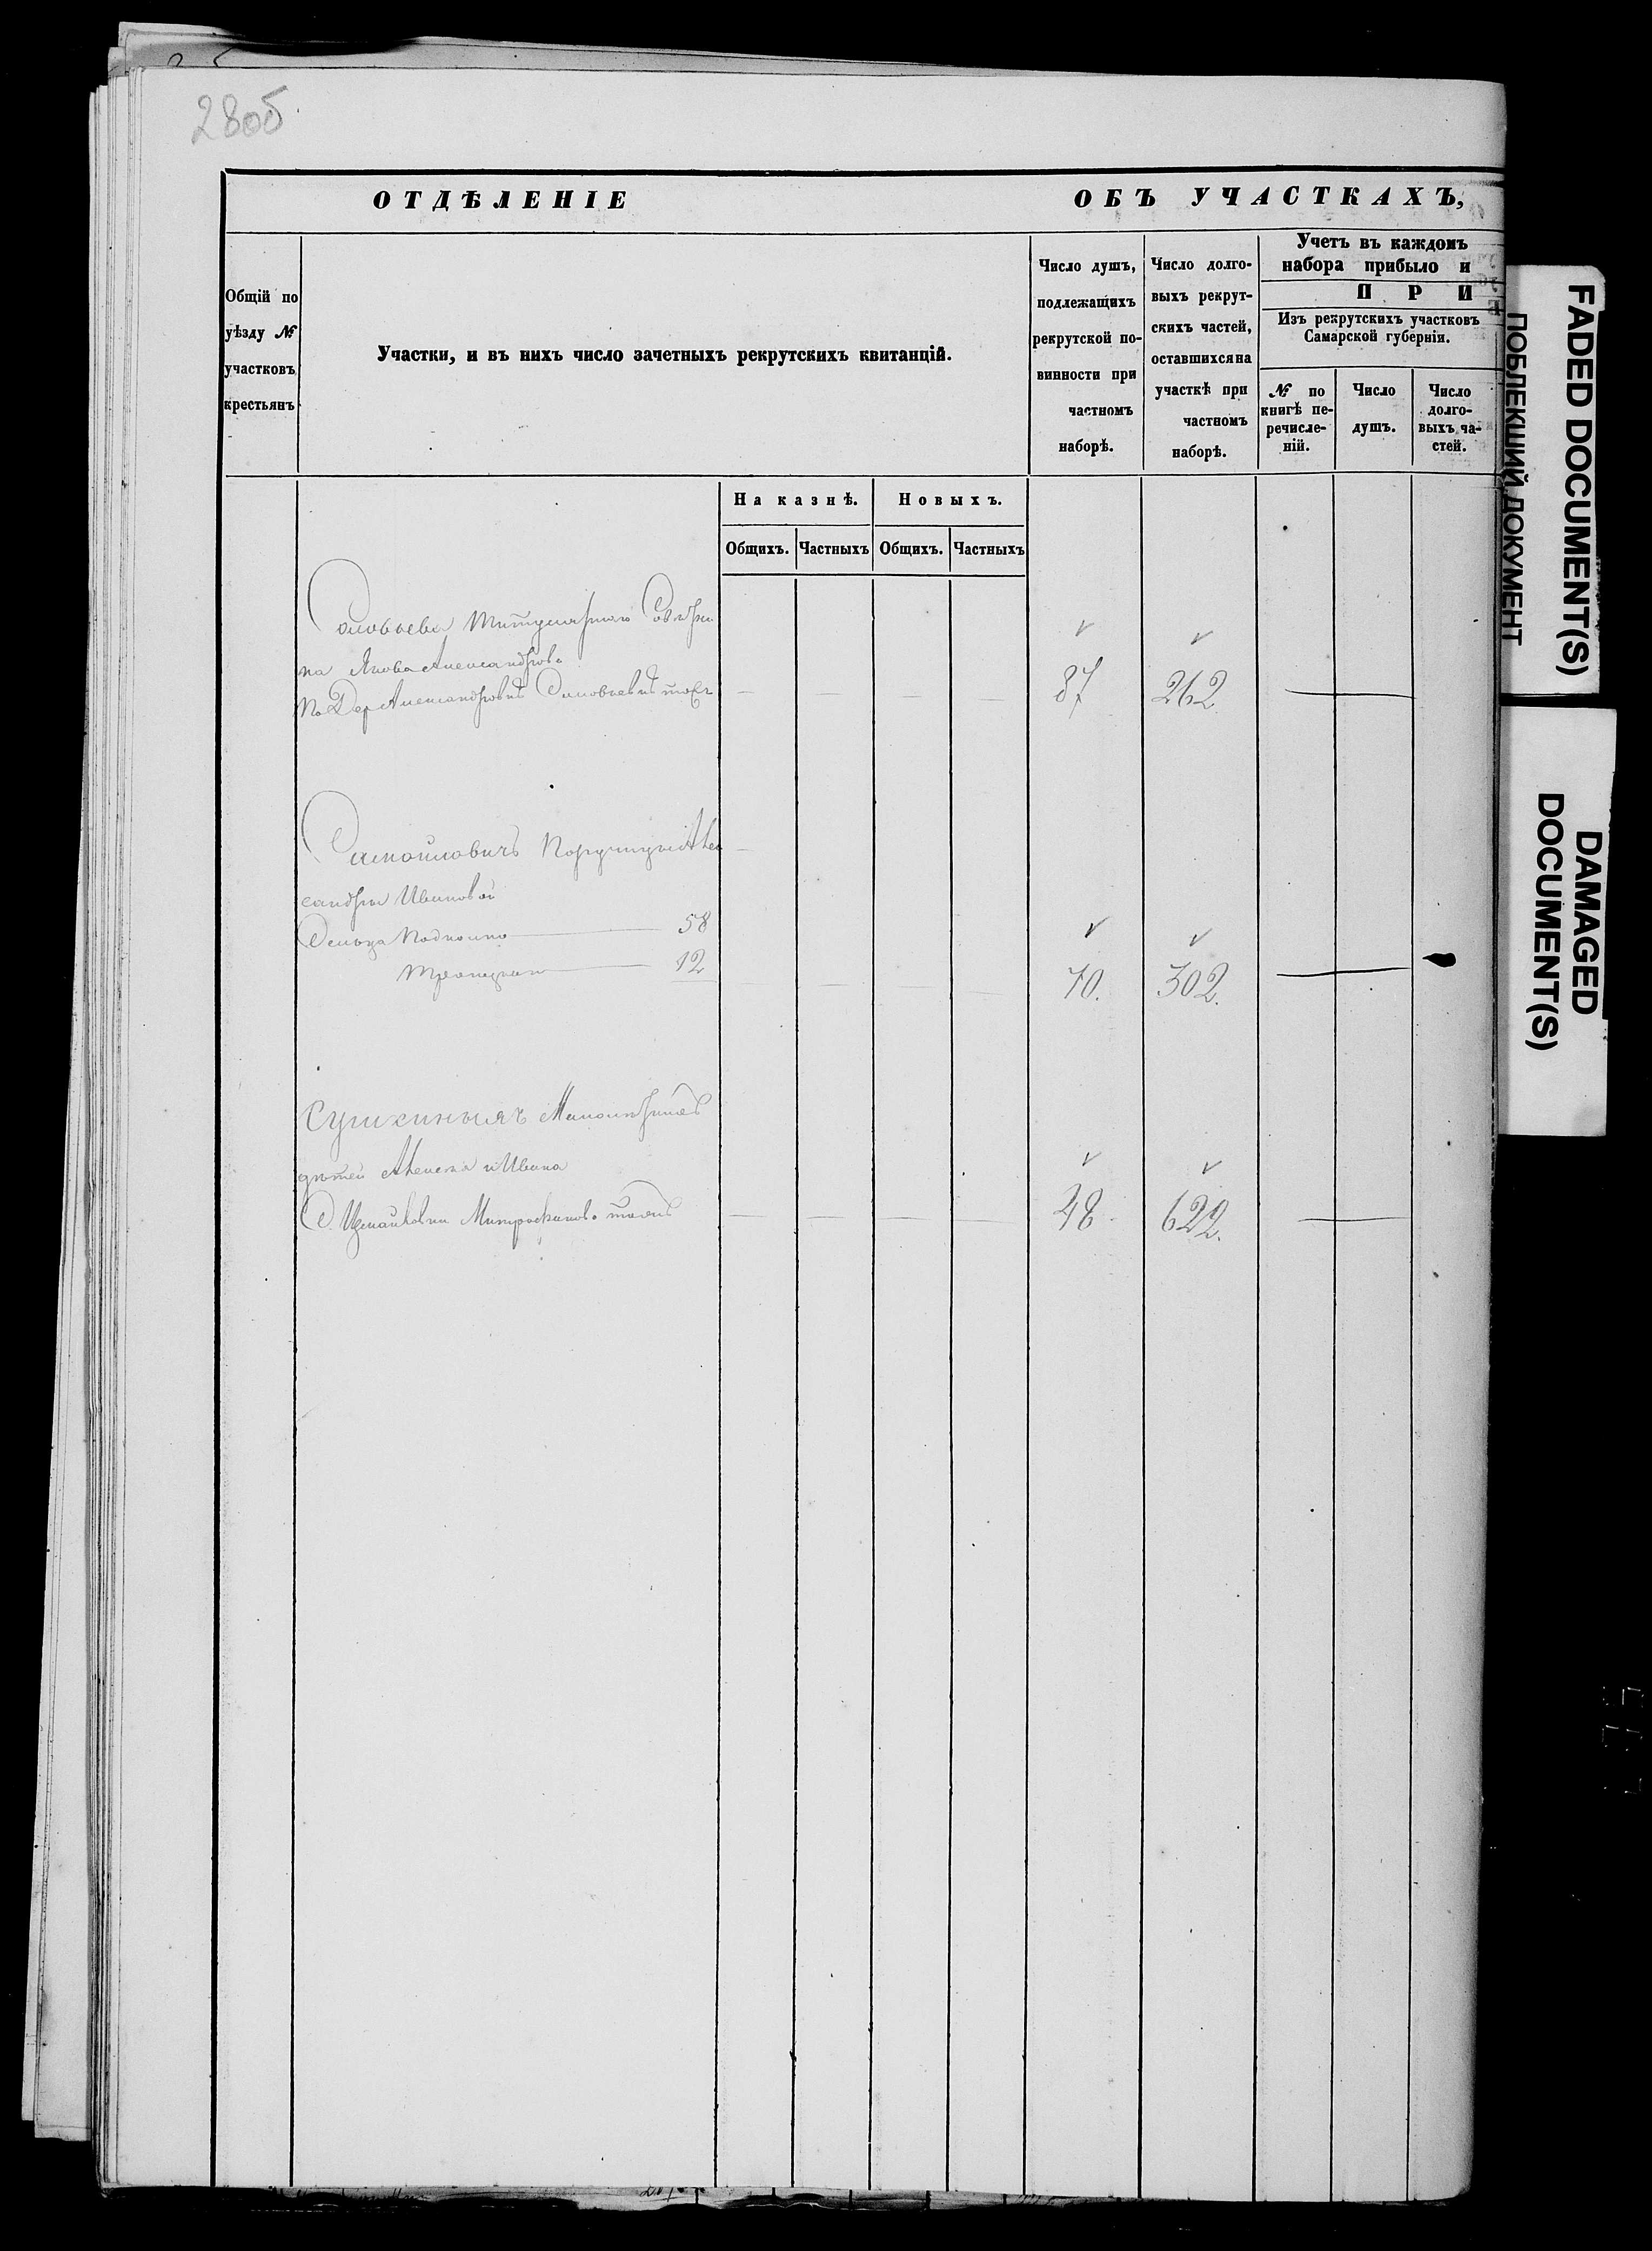 280б
ОТДѢЛЕНІЕ ОБЪ УЧАСТКАХЪ,
Общій по уѣзду № участковъ крестьянъ
Участки, и въ нихъ число зачетныхъ рекрутскихъ квитанцій.
Число душъ, подлежащихъ рекрутской повинности при частномъ наборѣ.
Число долговыхъ рекрутскихъ частей, оставшихся на участкѣ при частномъ наборѣ.
Учетъ въ каждомъ
набора прибыло и
ПРИ
Изъ рекрутскихъ участковъ
Самарской губерніи.
№ по книгѣ перечисленій.
Число душъ.
Число долговыхъ частей.
На казнѣ. Новыхъ.
Общихъ. Частныхъ Общихъ. Частныхъ
Соловьева Титулярнаго Совѣтни
ка Якова Александрова
Александровкѣ Соловьевкѣ тожъ 87 262
Самойловичъ Поручицы Алек
сандры Ивановой
Сельца 58
12
70. 302.
Сушкиныхъ
дѣтей Алексѣя и Ивана
С. Измайловки Митрофаново тожъ 48 622.
FADED DOCUMENT(S)
ПОБЛЕКШИЙ ДОКУМЕНТ
DAMAGED
DOCUMENT(S)